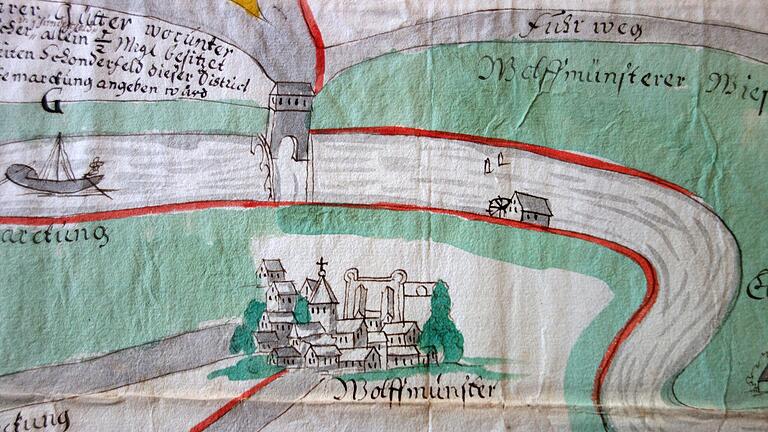 Äufter worunter
allein ½ Mrgl besitzet
eiten Schönderfeld dieser District
emarckung angeben würd
G
Fuhr weg
Wolffmünsterer Wies
arckung
Wolffmünster
ckung